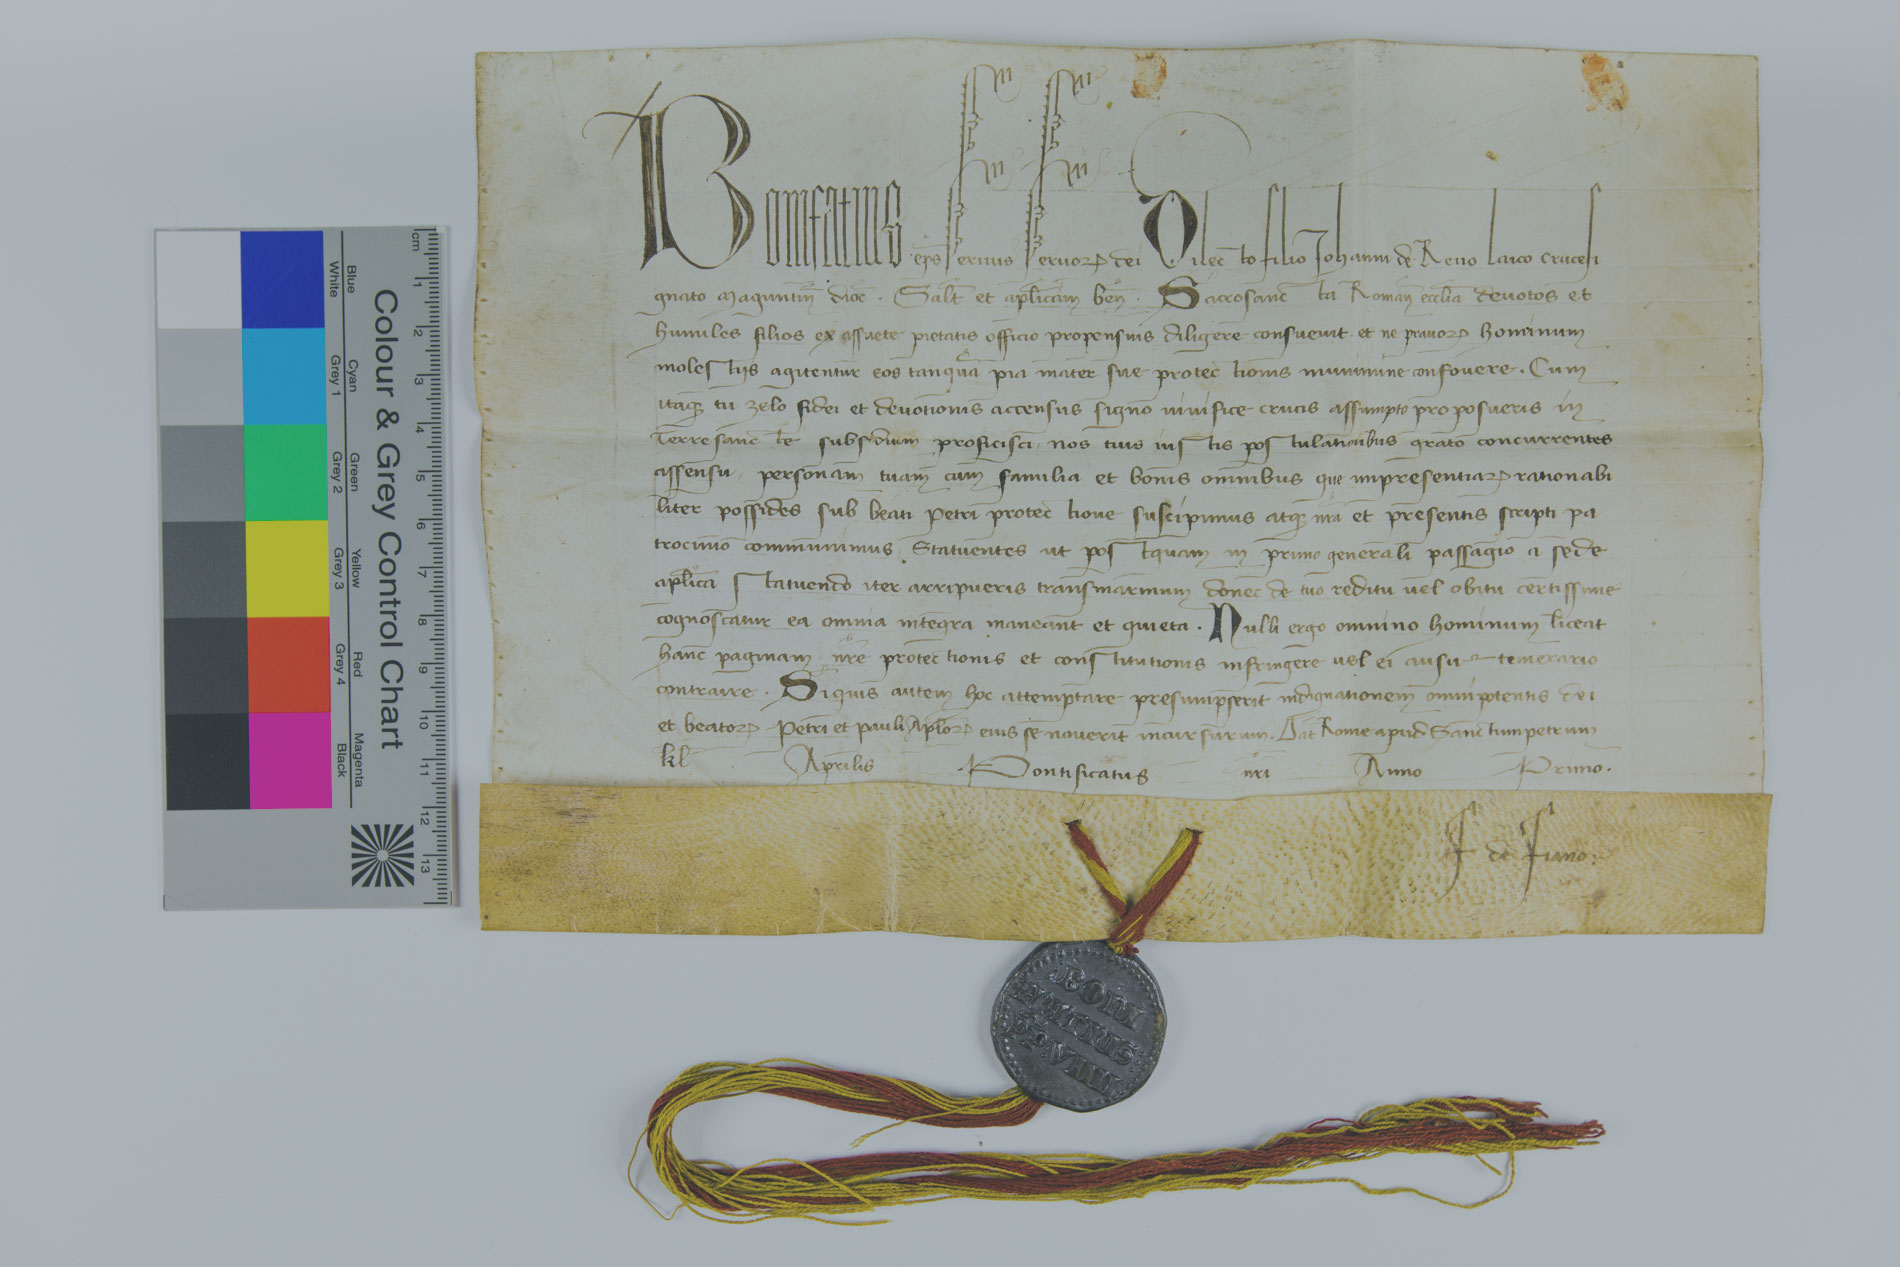 Bonifatius eps Servus Servoꝝ dei Dilecto filio Johanni de Reno laico crucesi
gnato Maguntin̄ dioc̄. Salt̄ et aplicam ben̄. Sacrosancta Roman̄ ecclīa devotos et
humiles filios ex assuete pietatis officio propensius diligere consuevit et ne pravoꝝ hominum
molestiis agitentur eos tanqua pia mater sue protectionis munimine confovere. Cum
itaqꝫ tu zelo fidei et devotionis accensus signo vivifice crucis assumpto proposueris in
terre sancte subsidium proficisci, nos tuis iustis postulationibus grato concurrentes
assensu, personam tuam cum familia et bonis omnibus que impresentiaꝝ rationabi
liter possides sub beati Petri protectione suscipimus atqꝫ nrā et presentis scripti pa
trocinio communimus, Statuentes ut postquam in primo generali passagio a sede
aplica statuendo iter arripueris transmarinum donec de tuo reditu vel obitu certissime
cognoscatur ea omnia integra maneant et quieta. Nulli ergo omnino hominum liceat
hanc paginam nrē protectionis et constitutionis infringere vel ei ausu temerario
contraire. Siquis autem hoc attemptare presumpserit indignationem omnipotentis dei
et beatoꝝ Petri et pauli Aploꝝ eius se noverit incursurum. Dat̄ Rome apud Sanctumpetrum
kl Aprilis Pontificatus nri Anno Primo.
F de Fiano.
BONI
FATIUS
PP VIIII
Colour & Grey Control Chart
Blue Cyan Green Yellow Red Magenta
White Grey 1 Grey 2 Grey 3 Grey 4 Black
cm 1 2 3 4 5 6 7 8 9 10 11 12 13